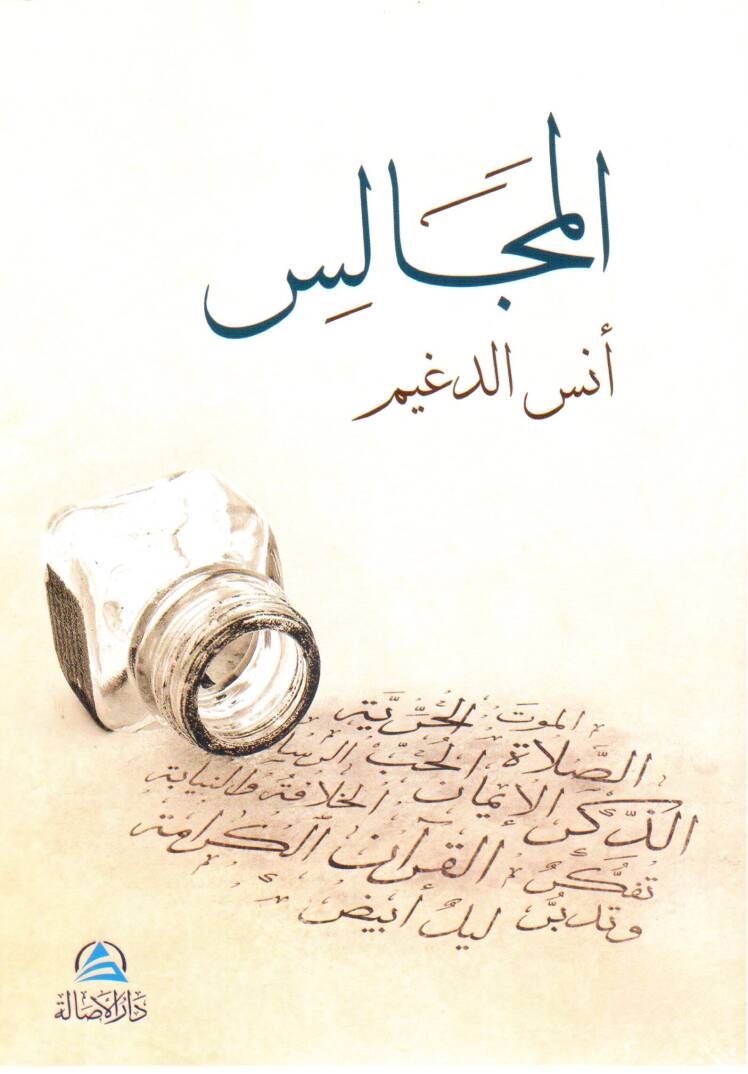 المجَالسِ
أنس الدغيم
الموتَ الحُرِّيَّة
الصَّلاة الحُبّ الرسا
الذِّكر الإيمان الخلافة والنيابة
تفكّرٌ القرآن الكرامة
وتدبّرٌ ليلٌ أبيض
دَارُ الأَصَالَة